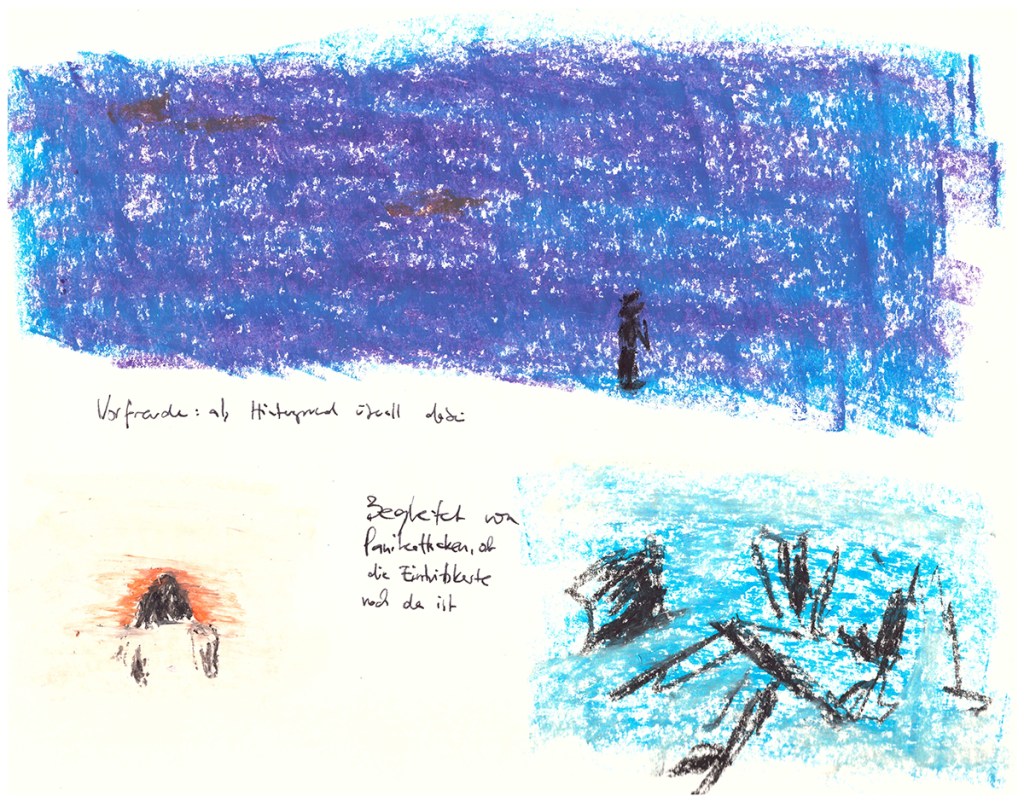 Vorfreude: als Hintergrund überall dabei
Begleitet von
Panikattacken, ob
die Eintrittskarte
noch da ist